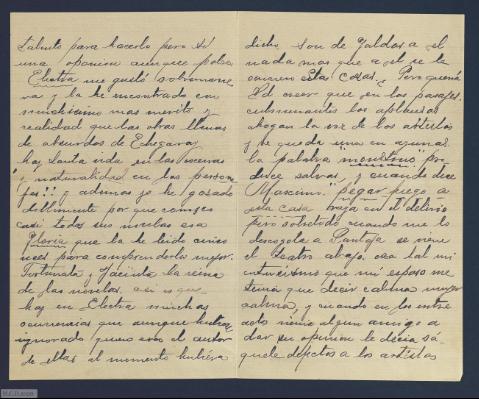 talento para hacerlo pero sí
una opinion aunque pobre
Electra me gustó sobremane
ra y la he encontrado con
muchisimo mas merito y
realidad que las obras llenas
de absurdos de Echegaray
hay tanta vida en las escenas
y naturalidad en los persona
jes!! y ademas yo he gozado
doblemente por que conozco
casi todas sus novelas esa
Gloria que la he leido cinco
veces para comprenderla mejor.
Fortunata y Jacinta la reina
de las novelas. asi es que
hay en Electra muchas
ocurrencias que aunque hubiera
ignorado quien era el autor
de ellas al momento hubiera
dicho son de Galdos a el
nada mas que a el se le
ocurren estas cosas. Pero querrá
Vd creer que en los pasajes
culminantes los aplausos
ahogan la voz de los artistas
y se queda una en ayunas
la palabra "monstruo" pro
duce salvas, y cuando dice
Maximo "pegar fuego a
esta casa" raya en el delirio
pero sobretodo cuando me lo
descogota a Pantoja se viene
el teatro abajo, era tal mi
entusiasmo que mi esposo me
tenia que decir calma mujer
calma, y cuando en los entre
acto venia algun amigo a
dar su opinion le decia sá
quele defectos a los artistas